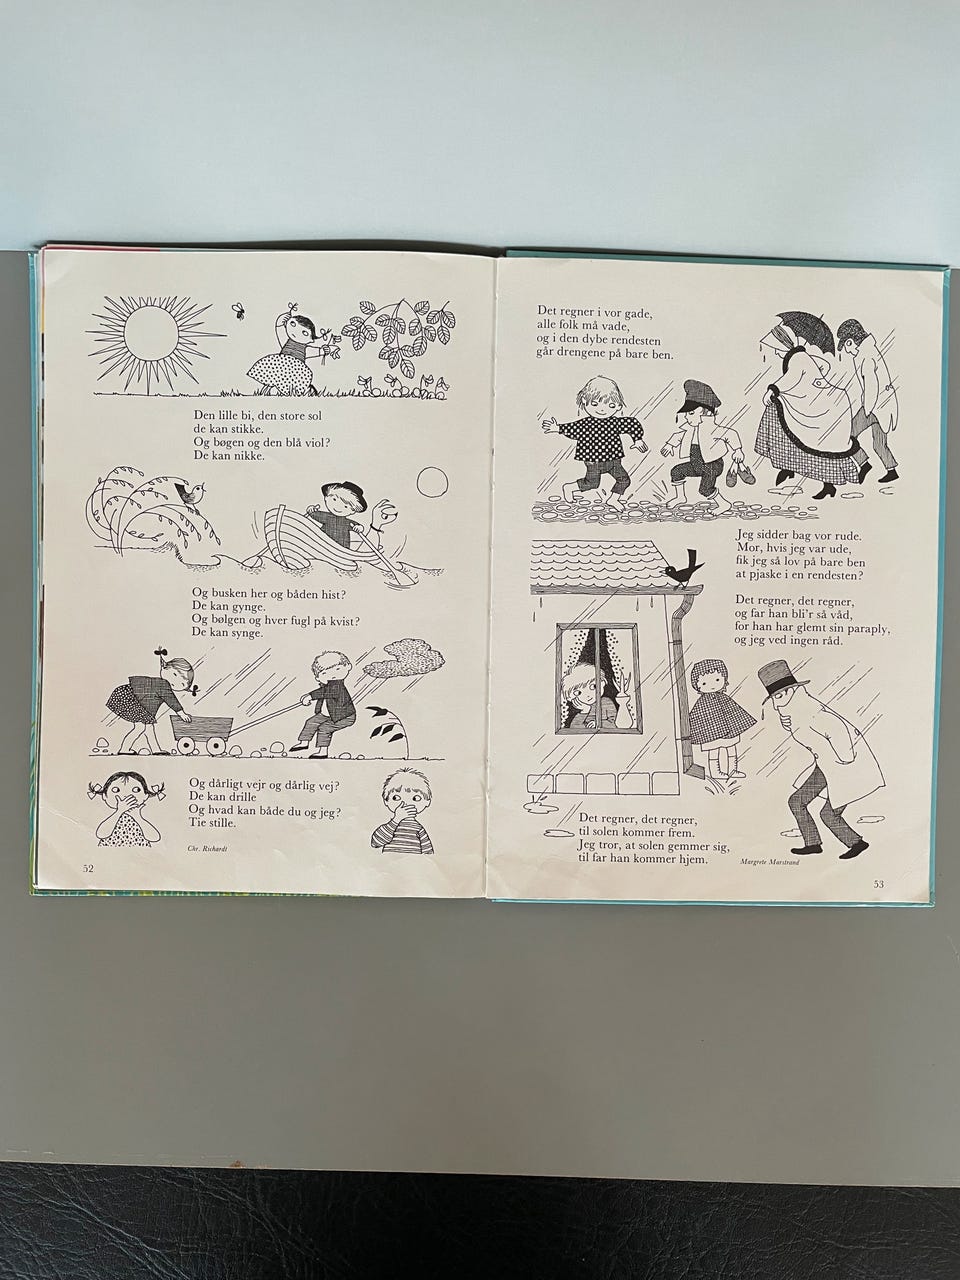 Den lille bi, den store sol
de kan stikke.
Og bøgen og den blå viol?
De kan nikke.
Og busken her og båden hist?
De kan gynge.
Og bølgen og hver fugl på kvist?
De kan synge.
Og dårligt vejr og dårlig vej?
De kan drille
Og hvad kan både du og jeg?
Tie stille.
Chr. Richardt
52
Det regner i vor gade,
alle folk må vade,
og i den dybe rendesten
går drengene på bare ben.
Jeg sidder bag vor rude.
Mor, hvis jeg var ude,
fik jeg så lov på bare ben
at pjaske i en rendesten?
Det regner, det regner,
og far han bli'r så våd,
for han har glemt sin paraply,
og jeg ved ingen råd.
Det regner, det regner,
til solen kommer frem.
Jeg tror, at solen gemmer sig,
til far han kommer hjem.
Margrete Marstrand
53